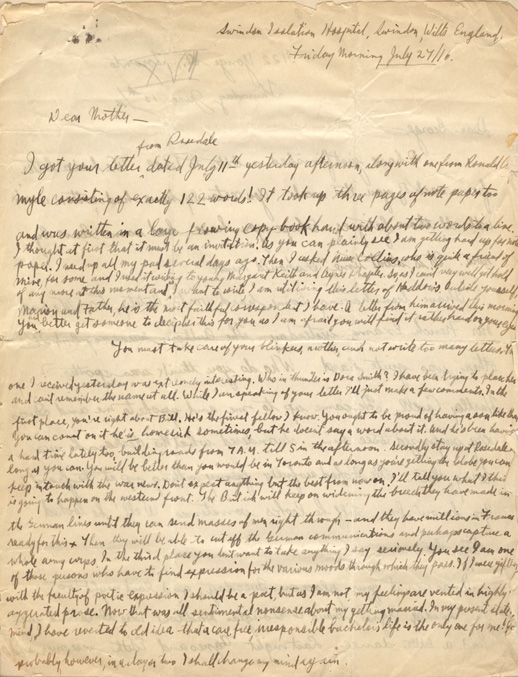 Swindon Isolation Hospital, Swindon, Wilts England,
Friday Morning July 27/16.
Dear Mother —
from Rosedale
I got your letter dated July 11th yesterday afternoon, along with one from Ronald
Myle consisting of exactly 122 words! It took up three pages of note paper too
and was written in a large flowing copy book hand with about two words to a line.
I thought at first that it must be an invitation. As you can plainly see I am getting hard up for
paper. I used up all my pad several days ago. Then I asked Collins, who is quite a friend of
mine, for some and I used it writing to you, Margaret Keith and Agnes
of any more at this moment and want to write I am utilizing this letter of Haddow's. Outside yourself
Marion and Father, he is the most faithful correspondent I have. A letter from him arrived this morning
You better get someone to decipher this for you as I am afraid you will find it rather hard on your eyes
You must take care of your blinkers, mother, and not write too many letters. The
one I received yesterday was extremely interesting. Who in thunder is Dora Smith? I have been trying to place her
and can't remember the name at all. While I am speaking of your letter I'll just make a few comments. In the
first place, you're right about Bill. He's the finest fellow I know. You ought to be proud of having a son like him
You can count on it he is homesick sometimes, but he doesn't say a word about it. And he's been having
a hard time lately too, building roads from 7 A.M. till 5 in the afternoon. Secondly stay up at Rosedale
long as you can. You will be better than you would be in Toronto and as long as you're getting the Globe you can
keep in touch with the war news. Don't expect anything but the best from now on. I'll tell you what I think
is going to happen on the western front. The British will keep on widening the breech they have made in
the German lines until they can send masses of men right through — and they have millions in France
ready for this. Then they will be able to cut off the German communications and perhaps capture a
whole army corps. In the third place you don't want to take anything I say seriously. You see I am one
of those persons who have to find expression for the various moods through which they pass. If I were gifted
with the faculty of poetic expression I should be a poet, but as I am not my feelings are vented in highly
exaggerated prose. Now that was all sentimental nonsense about my getting married. In my present state
mind I have reverted to old idea — that a care free irresponsible bachelor's life is the only one for me!
probably, however, in a day or two I shall change my mind again.